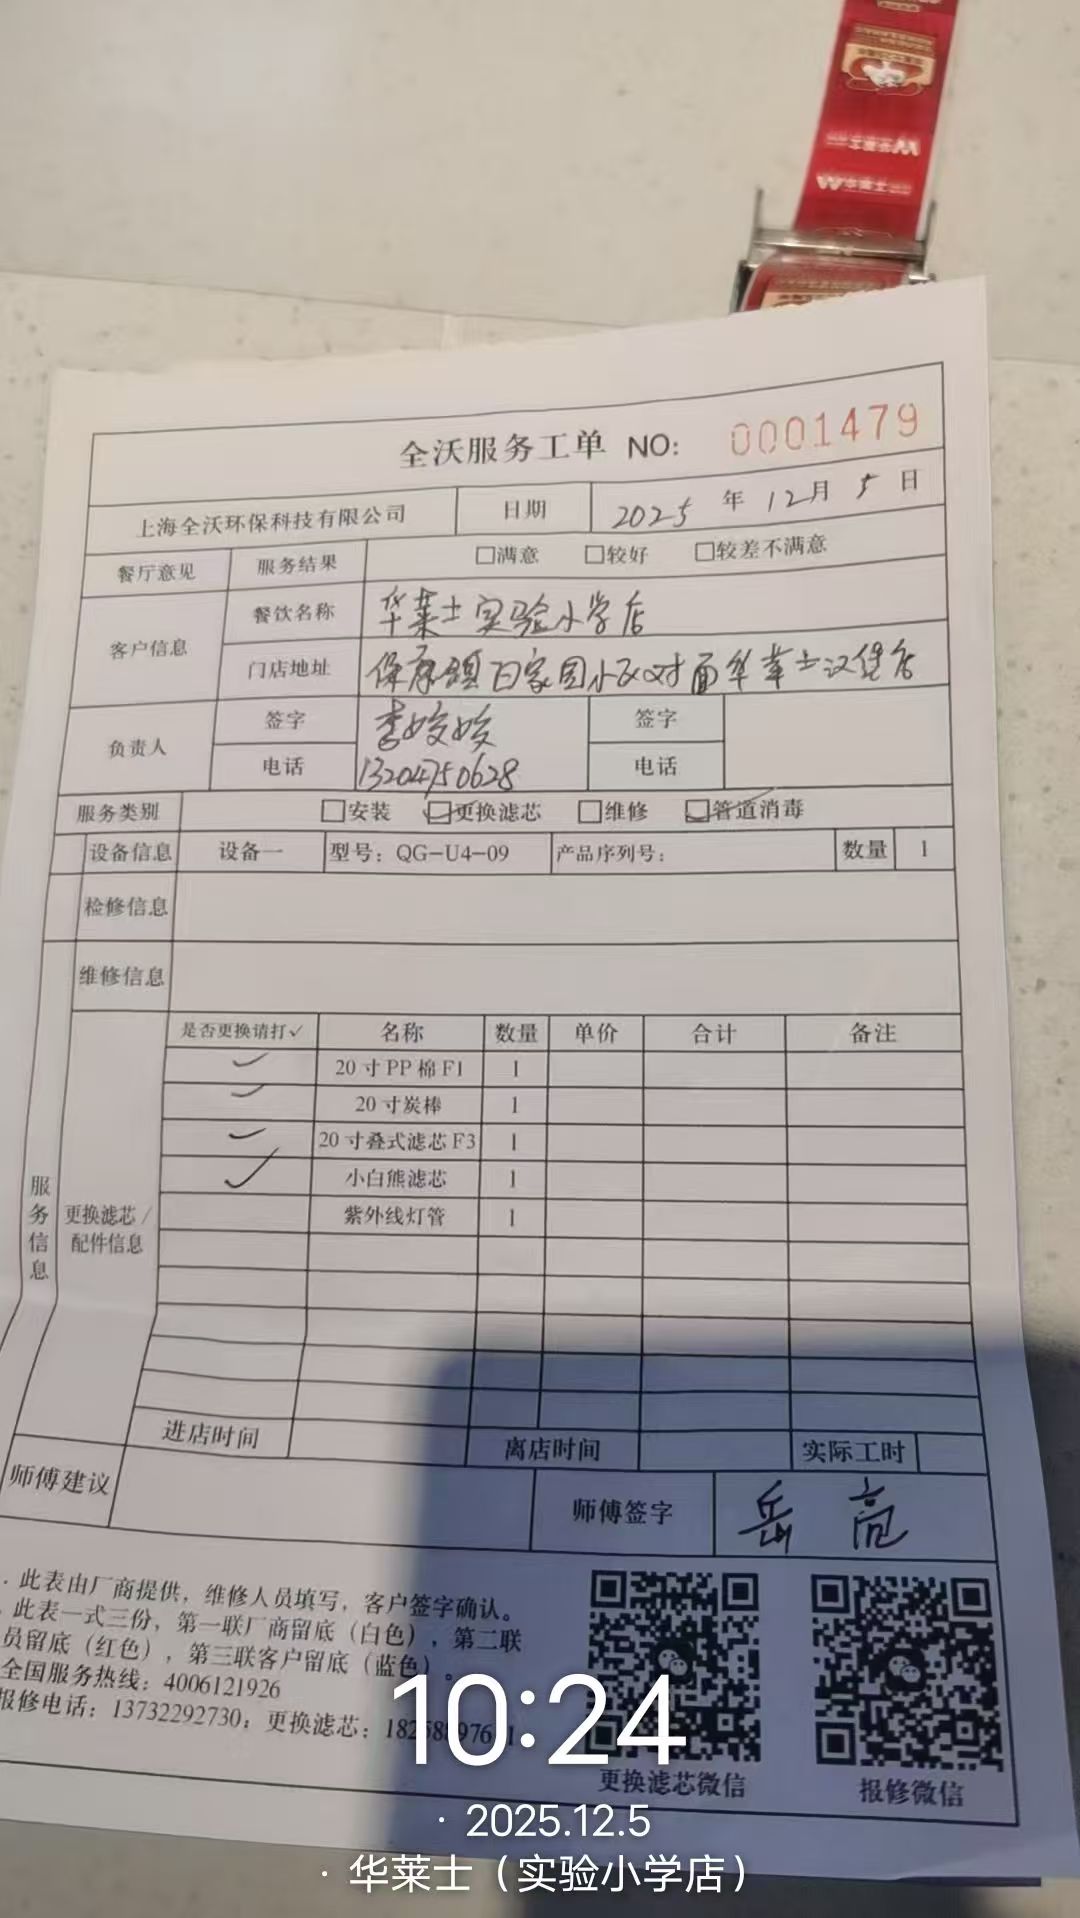 华莱士
全沃服务工单 NO: 0001479
上海全沃环保科技有限公司 日期 2025 年 12 月 5 日
餐厅意见 服务结果 □满意 □较好 □较差不满意
客户信息 餐饮名称 华莱士实验小学店
门店地址 保康镇白家园小区对面华莱士汉堡店
负责人 签字 李姣姣 签字
电话 13204750628 电话
服务类别 □安装 ☑更换滤芯 □维修 ☑管道消毒
设备信息 设备一 型号：QG-U4-09 产品序列号： 数量 1
检修信息
维修信息
服务信息 更换滤芯/配件信息
是否更换请打✓ 名称 数量 单价 合计 备注
✓ 20寸PP棉F1 1
✓ 20寸炭棒 1
✓ 20寸叠式滤芯F3 1
✓ 小白熊滤芯 1
紫外线灯管 1
进店时间 离店时间 实际工时
师傅建议 师傅签字 岳亮
. 此表由厂商提供，维修人员填写，客户签字确认。
. 此表一式三份，第一联厂商留底（白色），第二联
员留底（红色），第三联客户留底（蓝色）。
全国服务热线：4006121926
报修电话：13732292730；更换滤芯：
更换滤芯微信 报修微信
10:24
· 2025.12.5
· 华莱士（实验小学店）